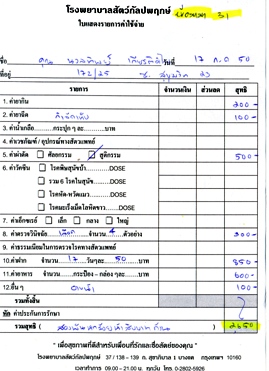 โรงพยาบาลสัตว์กัลปพฤกษ์
ใบแสดงรายการค่าใช้จ่าย
ชื่อ คุณ วันที่ 17 ก.ค 50
ที่อยู่ 172/25
รายการ จำนวนเงิน ส่วนลด สุทธิ
1. ค่ายากิน 200 -
2. ค่ายาฉีด 100 -
3. ค่าน้ำเกลือ กระปุก ๆ ละ บาท
4. ค่าเวชภัณฑ์ / อุปกรณ์ทางสัตวแพทย์
5. ค่าผ่าตัด ศัลยกรรม สูติกรรม 500 -
6. ค่าวัคซีน โรคพิษสุนัขบ้า DOSE
รวม 6 โรคในสุนัข DOSE
โรคหัด-หวัดแมว DOSE
โรคมะเร็งเม็ดโลหิตขาว DOSE
7. ค่าเอ็กซเรย์ เล็ก กลาง ใหญ่
8. ค่าตรวจวินิจฉัย เลือด จำนวน 4 ตัวอย่าง 300 -
9. ค่าธรรมเนียมในการตรวจโรคทางสัตวแพทย์
10. ค่าฝาก จำนวน 17 วันๆละ 50 บาท 850
11. ค่าอาหาร จำนวน กระป๋อง - กล่องๆ ละ บาท 600 -
12. อื่น ๆ 100 -
รวมทั้งสิ้น
หัก ค่าประกันการรักษา
รวมสุทธิ ( ) 2650
" เพื่อสุขภาพที่ดีสำหรับเพื่อนที่รักและซื่อสัตย์ของคุณ "
โรงพยาบาลสัตว์กัลปพฤกษ์ 37 / 138 - 139 ถ. สุขาภิบาล 1 บางแค กรุงเทพฯ 10160
เวลาทำการ 09.00 - 21.00 น. ทุกวัน โทร. 0-2802-5926